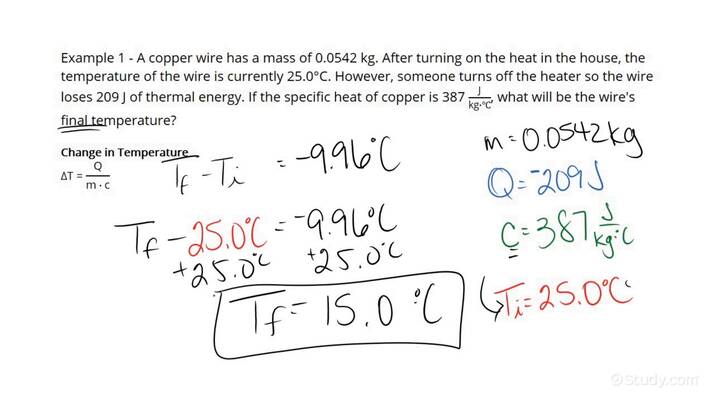 Example 1 - A copper wire has a mass of 0.0542 kg. After turning on the heat in the house, the
temperature of the wire is currently 25.0°C. However, someone turns off the heater so the wire
loses 209 J of thermal energy. If the specific heat of copper is 387 J/kg·°C, what will be the wire's
final temperature?
Change in Temperature
ΔT = Q/m · c
Tf - Ti = -9.96°C
Tf - 25.0°C = -9.96°C
+25.0°C +25.0°C
Tf = 15.0 °C
m = 0.0542 kg
Q = -209 J
C = 387 J/kg·°C
Ti = 25.0°C
©Study.com